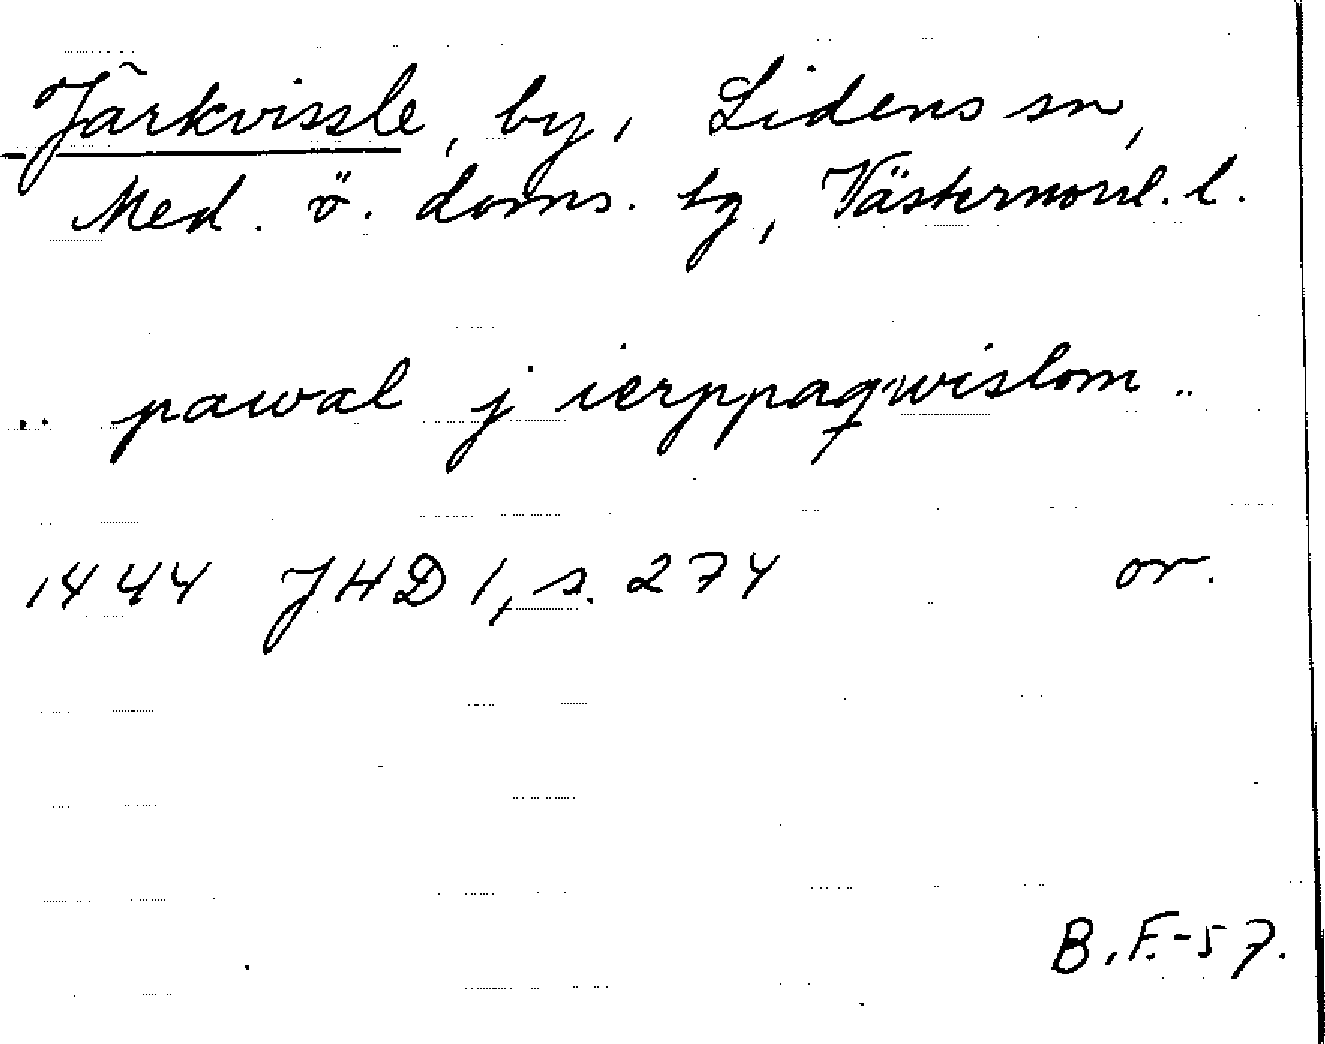 Järkvissle, by, Lidens sn,
Med. ö. doms. tg, Västernorrl. l.
.. pawal j ierppaqwislom ..
1444 JHD 1, s. 274 or.
B.F.-57.